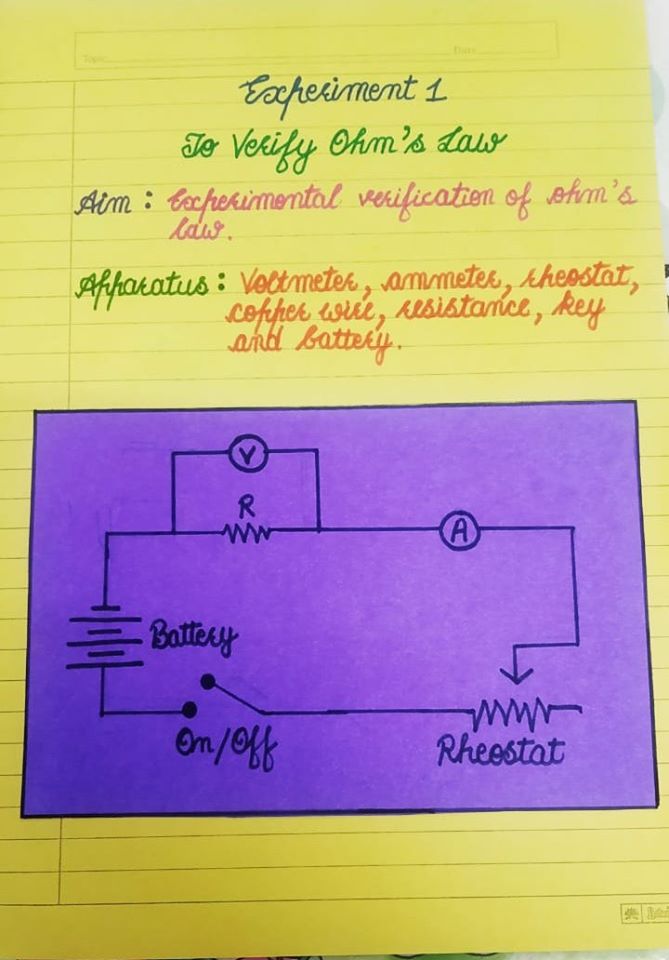 Topic
Date
Experiment 1
To Verify Ohm's Law
Aim : Experimental verification of ohm's
law.
Apparatus : Voltmeter, ammeter, rheostat,
copper wire, resistance, key
and battery.
V
R
A
Battery
On/Off
Rheostat